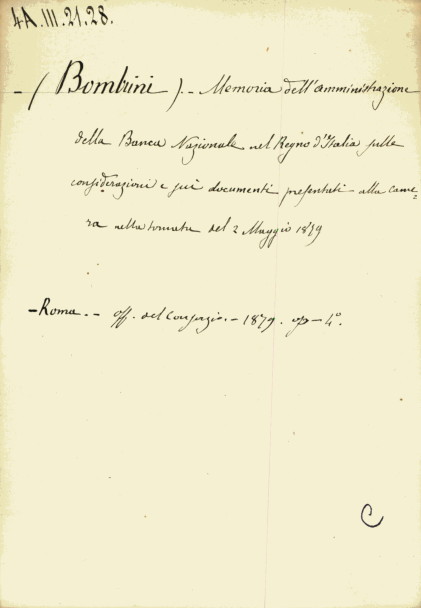 4A.III.21.28.
- (Bombrini). - Memoria dell'amministrazione
della Banca Nazionale nel Regno d'Italia sulle
considerazioni e sui documenti presentati alla came=
ra nella tornata del 2 Maggio 1879
- Roma. - off. del Consorzio. - 1879. op - 4°.
C